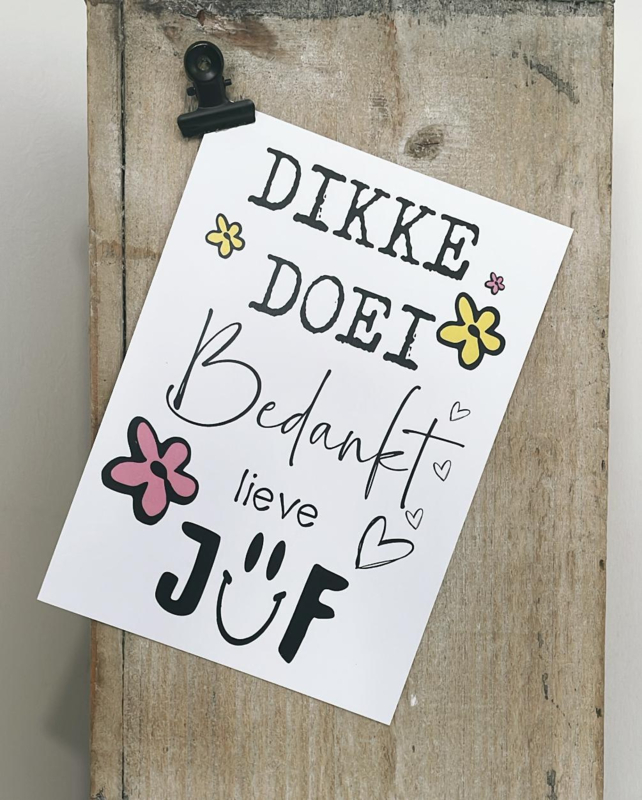 DIKKE
DOEI
Bedankt
lieve
JUF